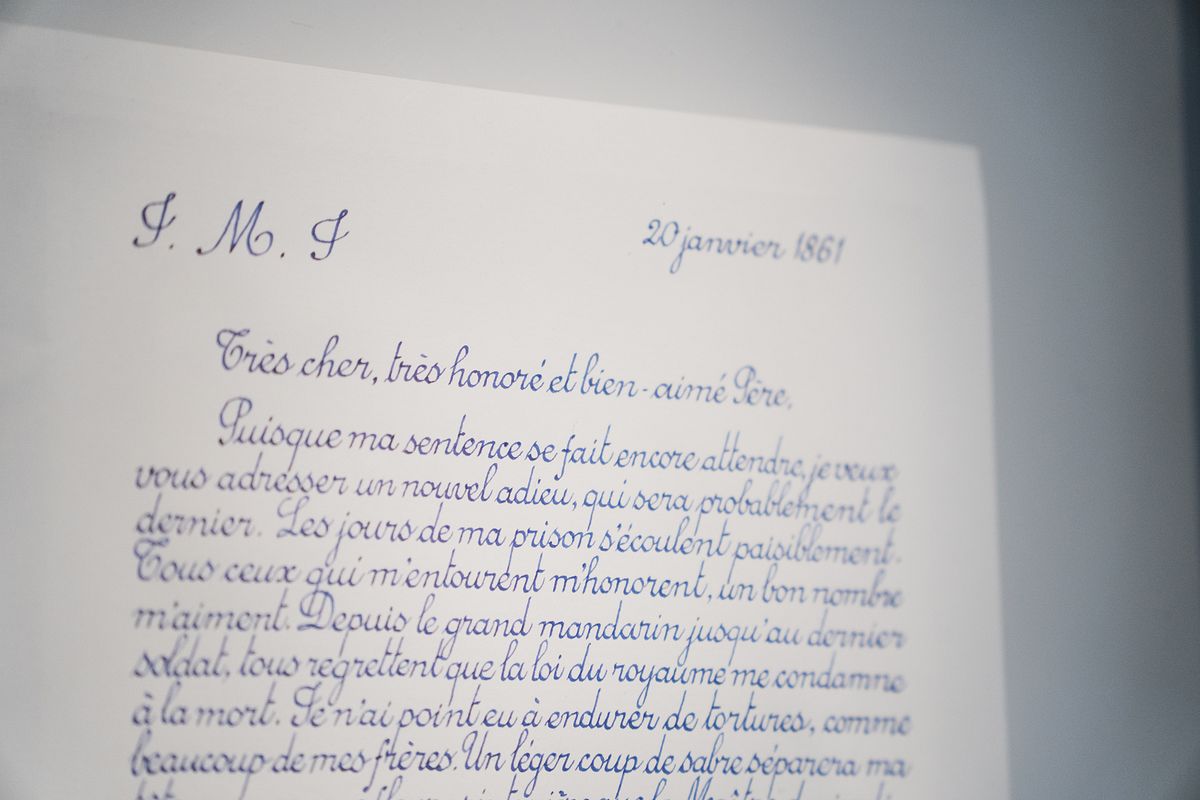 J. M. J
20 janvier 1861
Très cher, très honoré et bien-aimé Père,
Puisque ma sentence se fait encore attendre, je veux
vous adresser un nouvel adieu, qui sera probablement le
dernier. Les jours de ma prison s'écoulent paisiblement.
Tous ceux qui m'entourent m'honorent, un bon nombre
m'aiment. Depuis le grand mandarin jusqu'au dernier
soldat, tous regrettent que la loi du royaume me condamne
à la mort. Je n'ai point eu à endurer de tortures, comme
beaucoup de mes frères. Un léger coup de sabre séparera ma